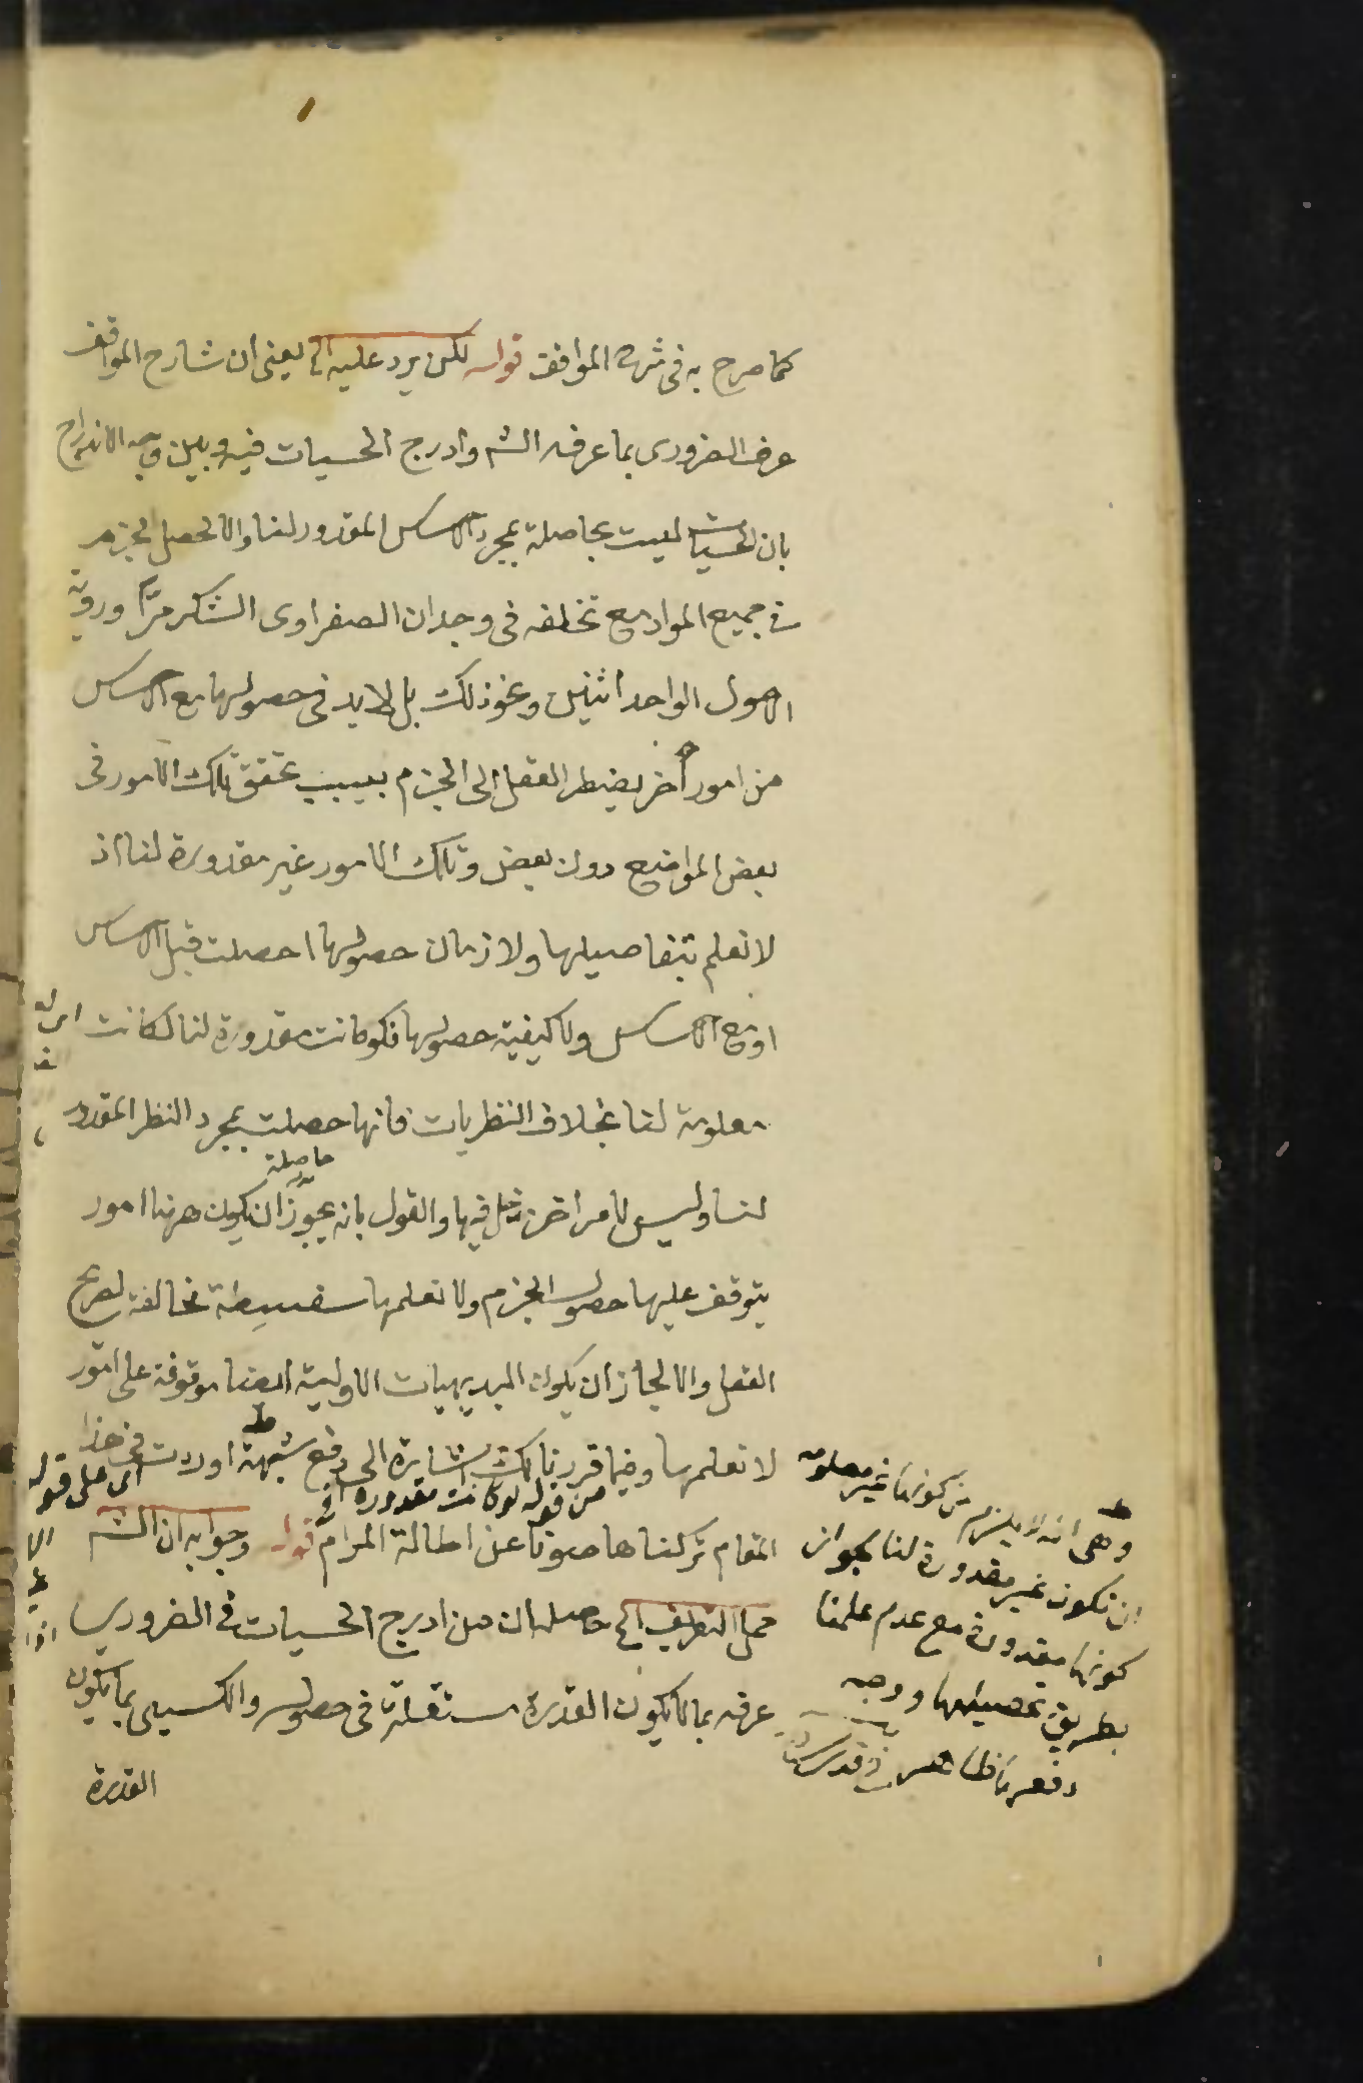 كما صرح به فى شرح المواقف قوله لكن يرد عليه الخ يعنى ان شارح المواقف
عرف الضرورى بما عرفه الشم وادرج الحسيات فيه وبين وجه الاندراج
بان الحسيات ليست بحاصلة بمجرد الاحساس المقدور لنا والا لحصل الجزم
فى جميع المواد مع تخلفه فى وجدان الصفراوى الشكر مرّا ورؤية
الاحول الواحد اثنين ونحو ذلك بل لا بد فى حصولها مع الاحساس
من امور أخر يضطر العقل الى الجزم بسبب تحقق تلك الامور فى
بعض المواضع دون بعض وتلك الامور غير مقدورة لنا اذ
لا نعلم بتفاصيلها ولا زمان حصولها احصلت قبل الاحساس
او مع الاحساس ولا كيفية حصولها فلو كانت مقدورة لنا لكانت
معلومة لنا بخلاف النظريات فانها حصلت بمجرد النظر المقدور
حاصلة
لنا وليس لامر اخر دخل فيها والقول بانه يجوز ان يكون ههنا امور
يتوقف عليها حصول الجزم ولا نعلمها سفسطة مخالفة لصريح
العقل والا لجاز ان يكون البديهيات الاولية ايضا موقوفة على امور
لا نعلمها وفيما قررنا لك اشارة الى دفع شبهة اوردت فى هذا
من قوله لو كانت مقدورة الخ
اى على قوله
المقام تركناها صونا عن اطالة المرام قوله وجوابه ان الشم
حمل التعريف الخ حاصله ان من ادرج الحسيات فى الضرورى
عرفه بما لا يكون القدرة مستقلة فى حصوله والكسبى بما يكون
القدرة
وهى انه لا يلزم من كونها غير معلومة
ان تكون غير مقدورة لنا لجواز
كونها مقدورة مع عدم علمنا
بطريق تحصيلها ووجه
دفعها ظاهر